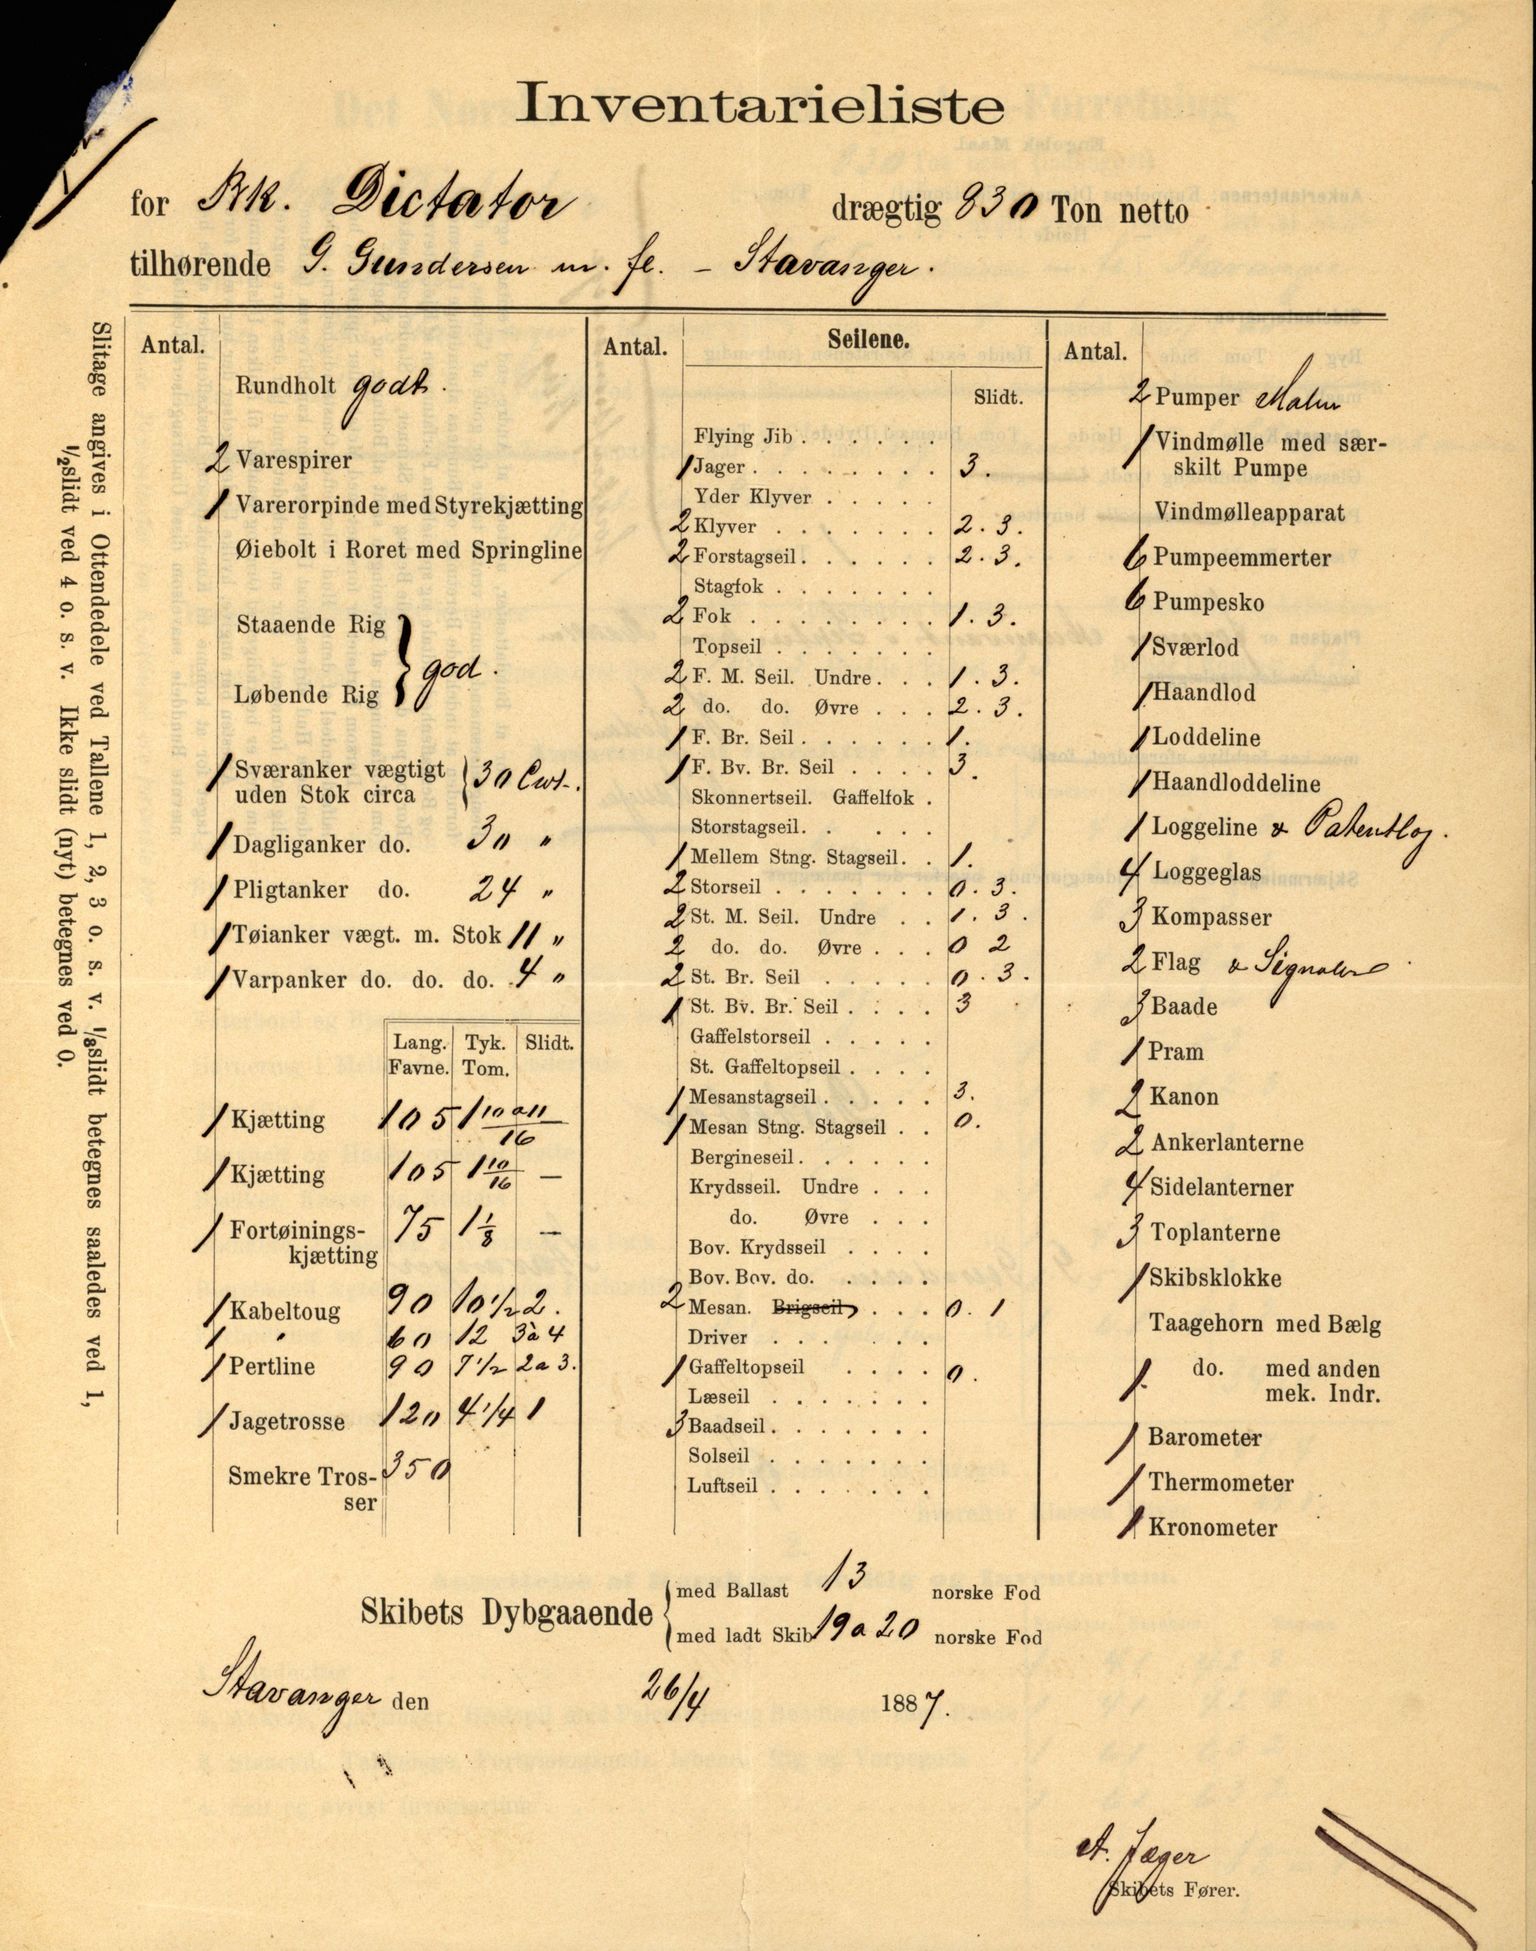 Inventarieliste
for Bk. Dictator drægtig 830 Ton netto
tilhørende G. Gundersen m. fl. – Stavanger.
Slitage angives i Ottendedele ved Tallene 1, 2, 3 o. s. v. 1/8 slidt betegnes saaledes ved 1,
1/2 slidt ved 4 o. s. v. Ikke slidt (nyt) betegnes ved 0.
Antal.
Rundholt godt.
2 Varespirer
1 Varerorpinde med Styrekjætting
Øiebolt i Roret med Springline
Staaende Rig
god.
Løbende Rig
1 Sværanker vægtigt
uden Stok circa 30 Cwt.
1 Dagliganker do. 30 "
1 Pligtanker do. 24 "
1 Tøianker vægt. m. Stok 11 "
1 Varpanker do. do. do. 4 "
Lang. Tyk. Slidt.
Favne. Tom.
1 Kjætting 105 1 10 a 11/16
1 Kjætting 105 1 10/16 –
1 Fortøinings-
kjætting 75 1 1/8 –
1 Kabeltoug 90 10 1/2 2.
1 " 60 12 3 à 4
1 Pertline 90 7 1/2 2 a 3.
1 Jagetrosse 120 4 1/4 1
Smekre Tros-
ser 350
Antal. Seilene.
Slidt.
Flying Jib . . . . . .
1 Jager . . . . . . . . 3.
Yder Klyver . . . . .
2 Klyver . . . . . . . 2. 3.
2 Forstagseil . . . . . . 2. 3.
Stagfok . . . . . . .
2 Fok . . . . . . . . 1. 3.
Topseil . . . . . . .
2 F. M. Seil. Undre . . . 1. 3.
2 do. do. Øvre . . . 2. 3.
1 F. Br. Seil . . . . . . 1.
1 F. Bv. Br. Seil . . . . 3.
Skonnertseil. Gaffelfok .
Storstagseil. . . . .
1 Mellem Stng. Stagseil. . 1.
2 Storseil . . . . . . . 0. 3.
2 St. M. Seil. Undre . . 1. 3.
2 do. do. Øvre . . . 0 2
2 St. Br. Seil . . . . . 0. 3.
1 St. Bv. Br. Seil . . . . 3
Gaffelstorseil . . . . .
St. Gaffeltopseil . . . .
1 Mesanstagseil . . . . . 3.
1 Mesan Stng. Stagseil . . 0.
Bergineseil . . . . . .
Krydsseil. Undre . . .
do. Øvre . . .
Bov. Krydsseil . . . .
Bov. Bov. do. . . . .
2 Mesan. Brigseil . . . 0. 1
Driver . . . . . .
1 Gaffeltopseil . . . . 0.
Læseil . . . . . . .
3 Baadseil . . . . . . .
Solseil . . . . . . .
Luftseil . . . . . . .
Antal.
2 Pumper
1 Vindmølle med sær-
skilt Pumpe
Vindmølleapparat
6 Pumpeemmerter
6 Pumpesko
1 Sværlod
1 Haandlod
1 Loddeline
1 Haandloddeline
1 Loggeline & Patentlog.
4 Loggeglas
3 Kompasser
2 Flag & Signaler
3 Baade
1 Pram
2 Kanon
2 Ankerlanterne
4 Sidelanterner
3 Toplanterne
1 Skibsklokke
Taagehorn med Bælg
1. do. med anden
mek. Indr.
1 Barometer
1 Thermometer
1 Kronometer
Skibets Dybgaaende
med Ballast 13 norske Fod
med ladt Skib 19 a 20 norske Fod
Stavanger den 26/4 1887.
A. Jæger
Skibets Fører.